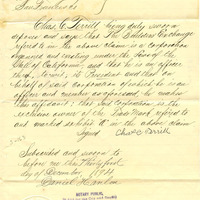 San Francisco
Chas. C. Terrill being duly sworn
deposes and says that The Bohemian Exchange
referred to in the above claim is a corporation
organized and existing under the laws of the
State of California; and that he is an officer
thereof, to wit, its President and that on
behalf of said corporation of which he is an
officer and member as aforesaid, he makes
this affidavit; that said corporation is the
exclusive owner of the Trade Mark referred to
and marked exhibit A in the above claim
Signed Chas C. Terrill
Subscribed and sworn to
before me this
day of December, 1894
NOTARY PUBLIC,